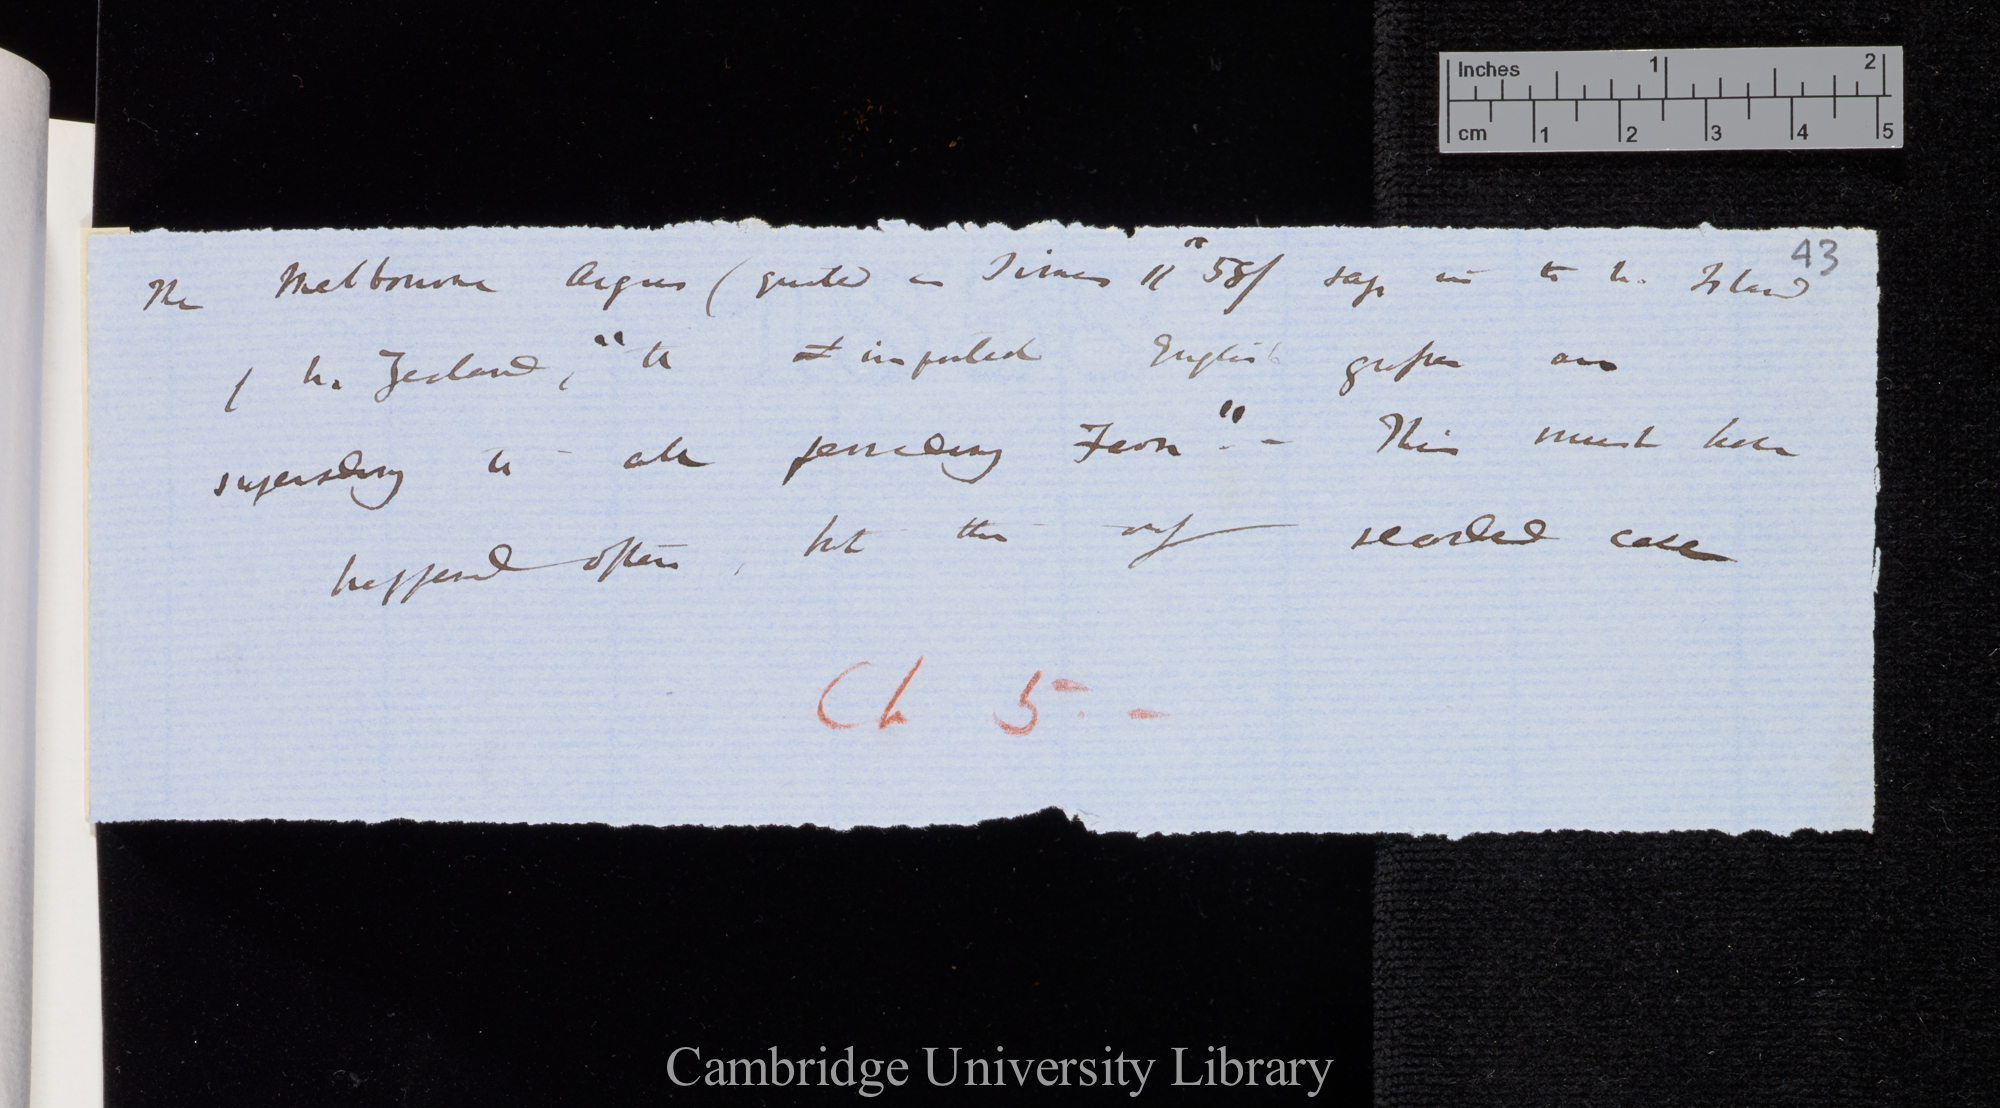 43
The Melbourne Argus (quoted in Times 11 58/ says in the N. Island
of N. Zealand, "the imported English grasses are
superseding the all pervading Fern". - This must have
happened often, but this only recorded case
Ch 5. -
Inches 1 2
cm 1 2 3 4 5
Cambridge University Library